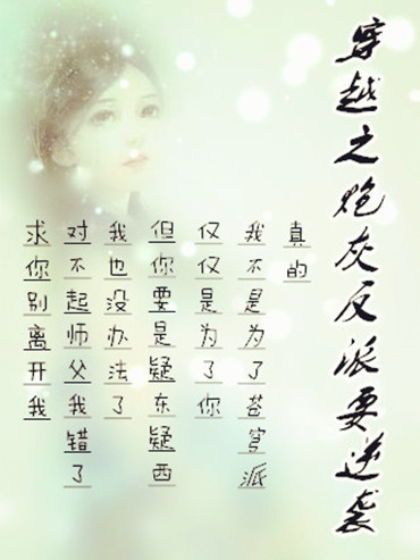 穿越之炮灰反派要逆袭
真的
我不是为了苍穹派
仅仅是为了你
但你要是疑东疑西
我也没办法了
对不起师父我错了
求你别离开我